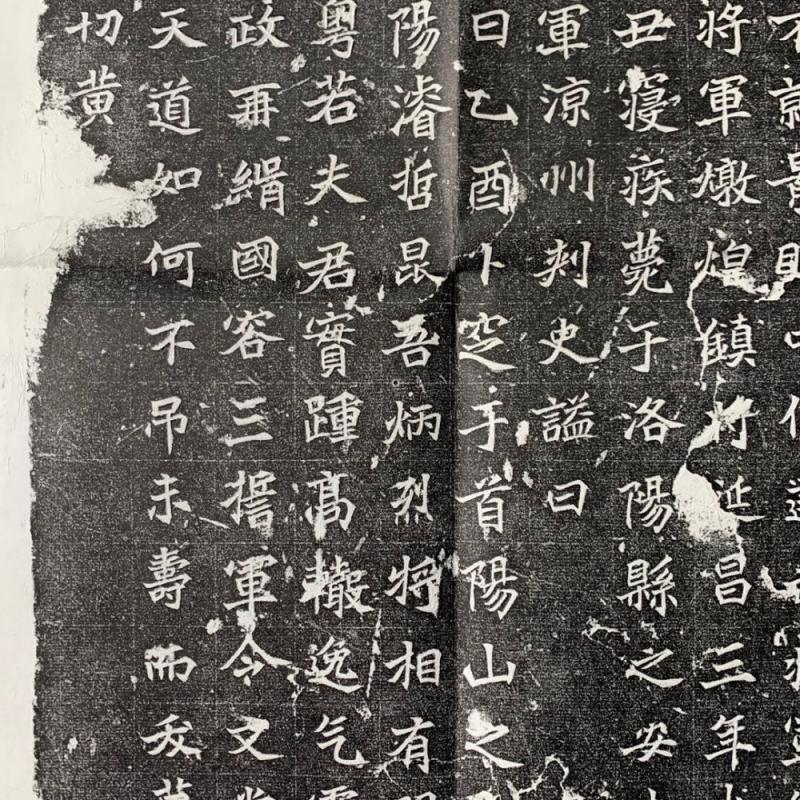 不就景
將軍燉煌鎮將延昌三年
丑寑疾薨于洛陽縣之安
軍涼州刾史謚曰
日乙酉卜窆于首陽山之
陽濬哲昆吾炳烈將相有
粵若夫君實踵高轍逸气
政再緝國容三軍令文
天道如何不吊未壽而
切黃